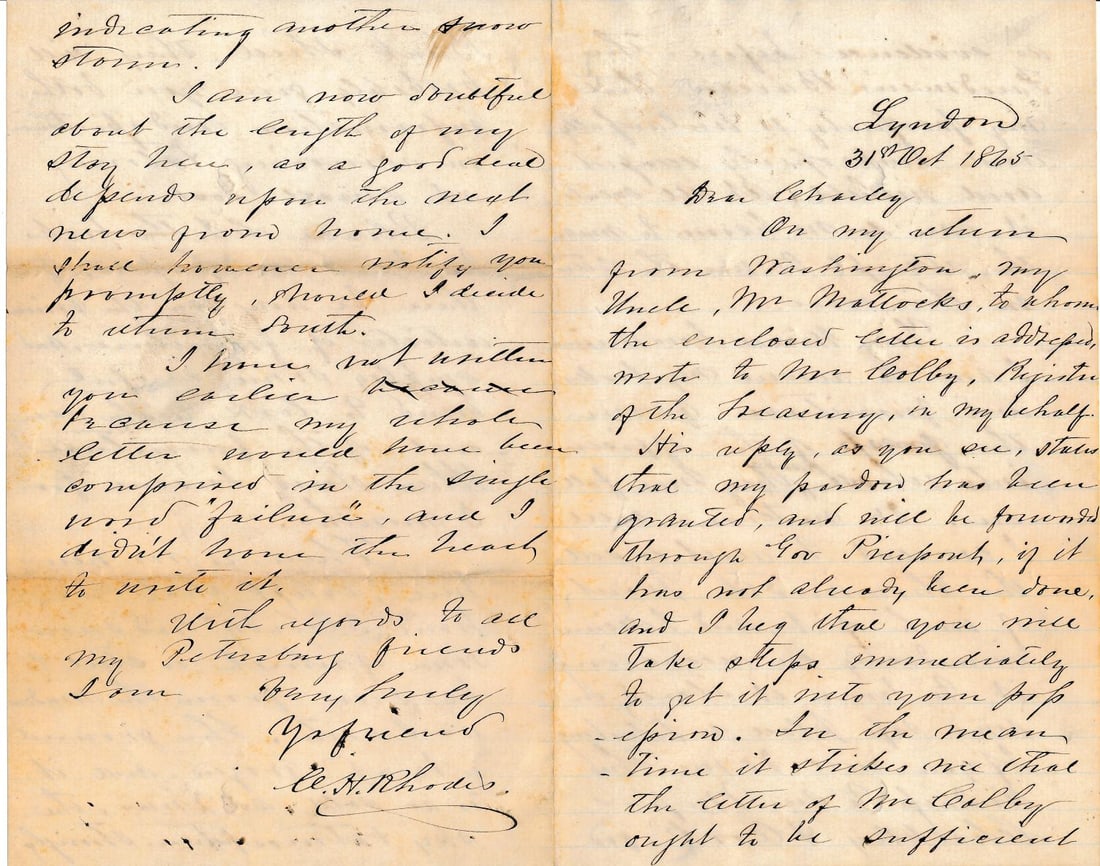 Lyndon
31st Oct 1865
Dear Charley
On my return
from Washington, my
Uncle, Mr Mattocks, to whom
the enclosed letter is addressed,
wrote to Mr Colby, Registrer
of the Treasury, in my behalf.
His reply, as you see, states
that my pardon has been
granted, and will be forwarded
through Gov Pierpont, if it
has not already been done,
and I beg that you will
take steps immediately
to get it into your poss
-ession. In the mean
-time it strikes me that
the letter of Mr Colby
ought to be sufficient
indicating another snow
storm.
I am now doubtful
about the length of my
stay here, as a good deal
depends upon the next
news from home. I
shall however notify you
promptly, should I decide
to return South.
I have not written
you earlier because
because my whole
letter would have been
comprised in the single
word "failure", and I
didn't have the heart
to write it.
With regards to all
my Petersburg friends
I am Very truly
Yr friend
C. H. Rhodes.